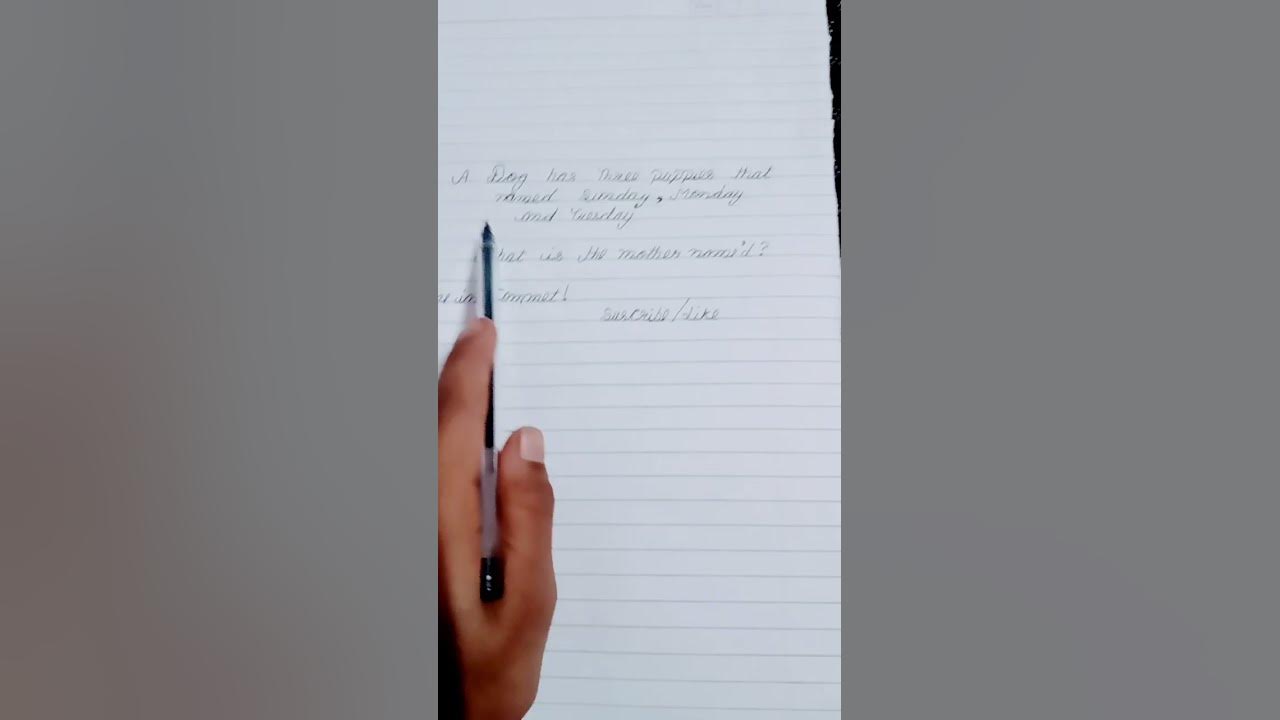 A Dog has three puppies that
named Sunday, Monday
and Tuesday
hat is the mother name'd?
in Commet!
Suscribe/Like